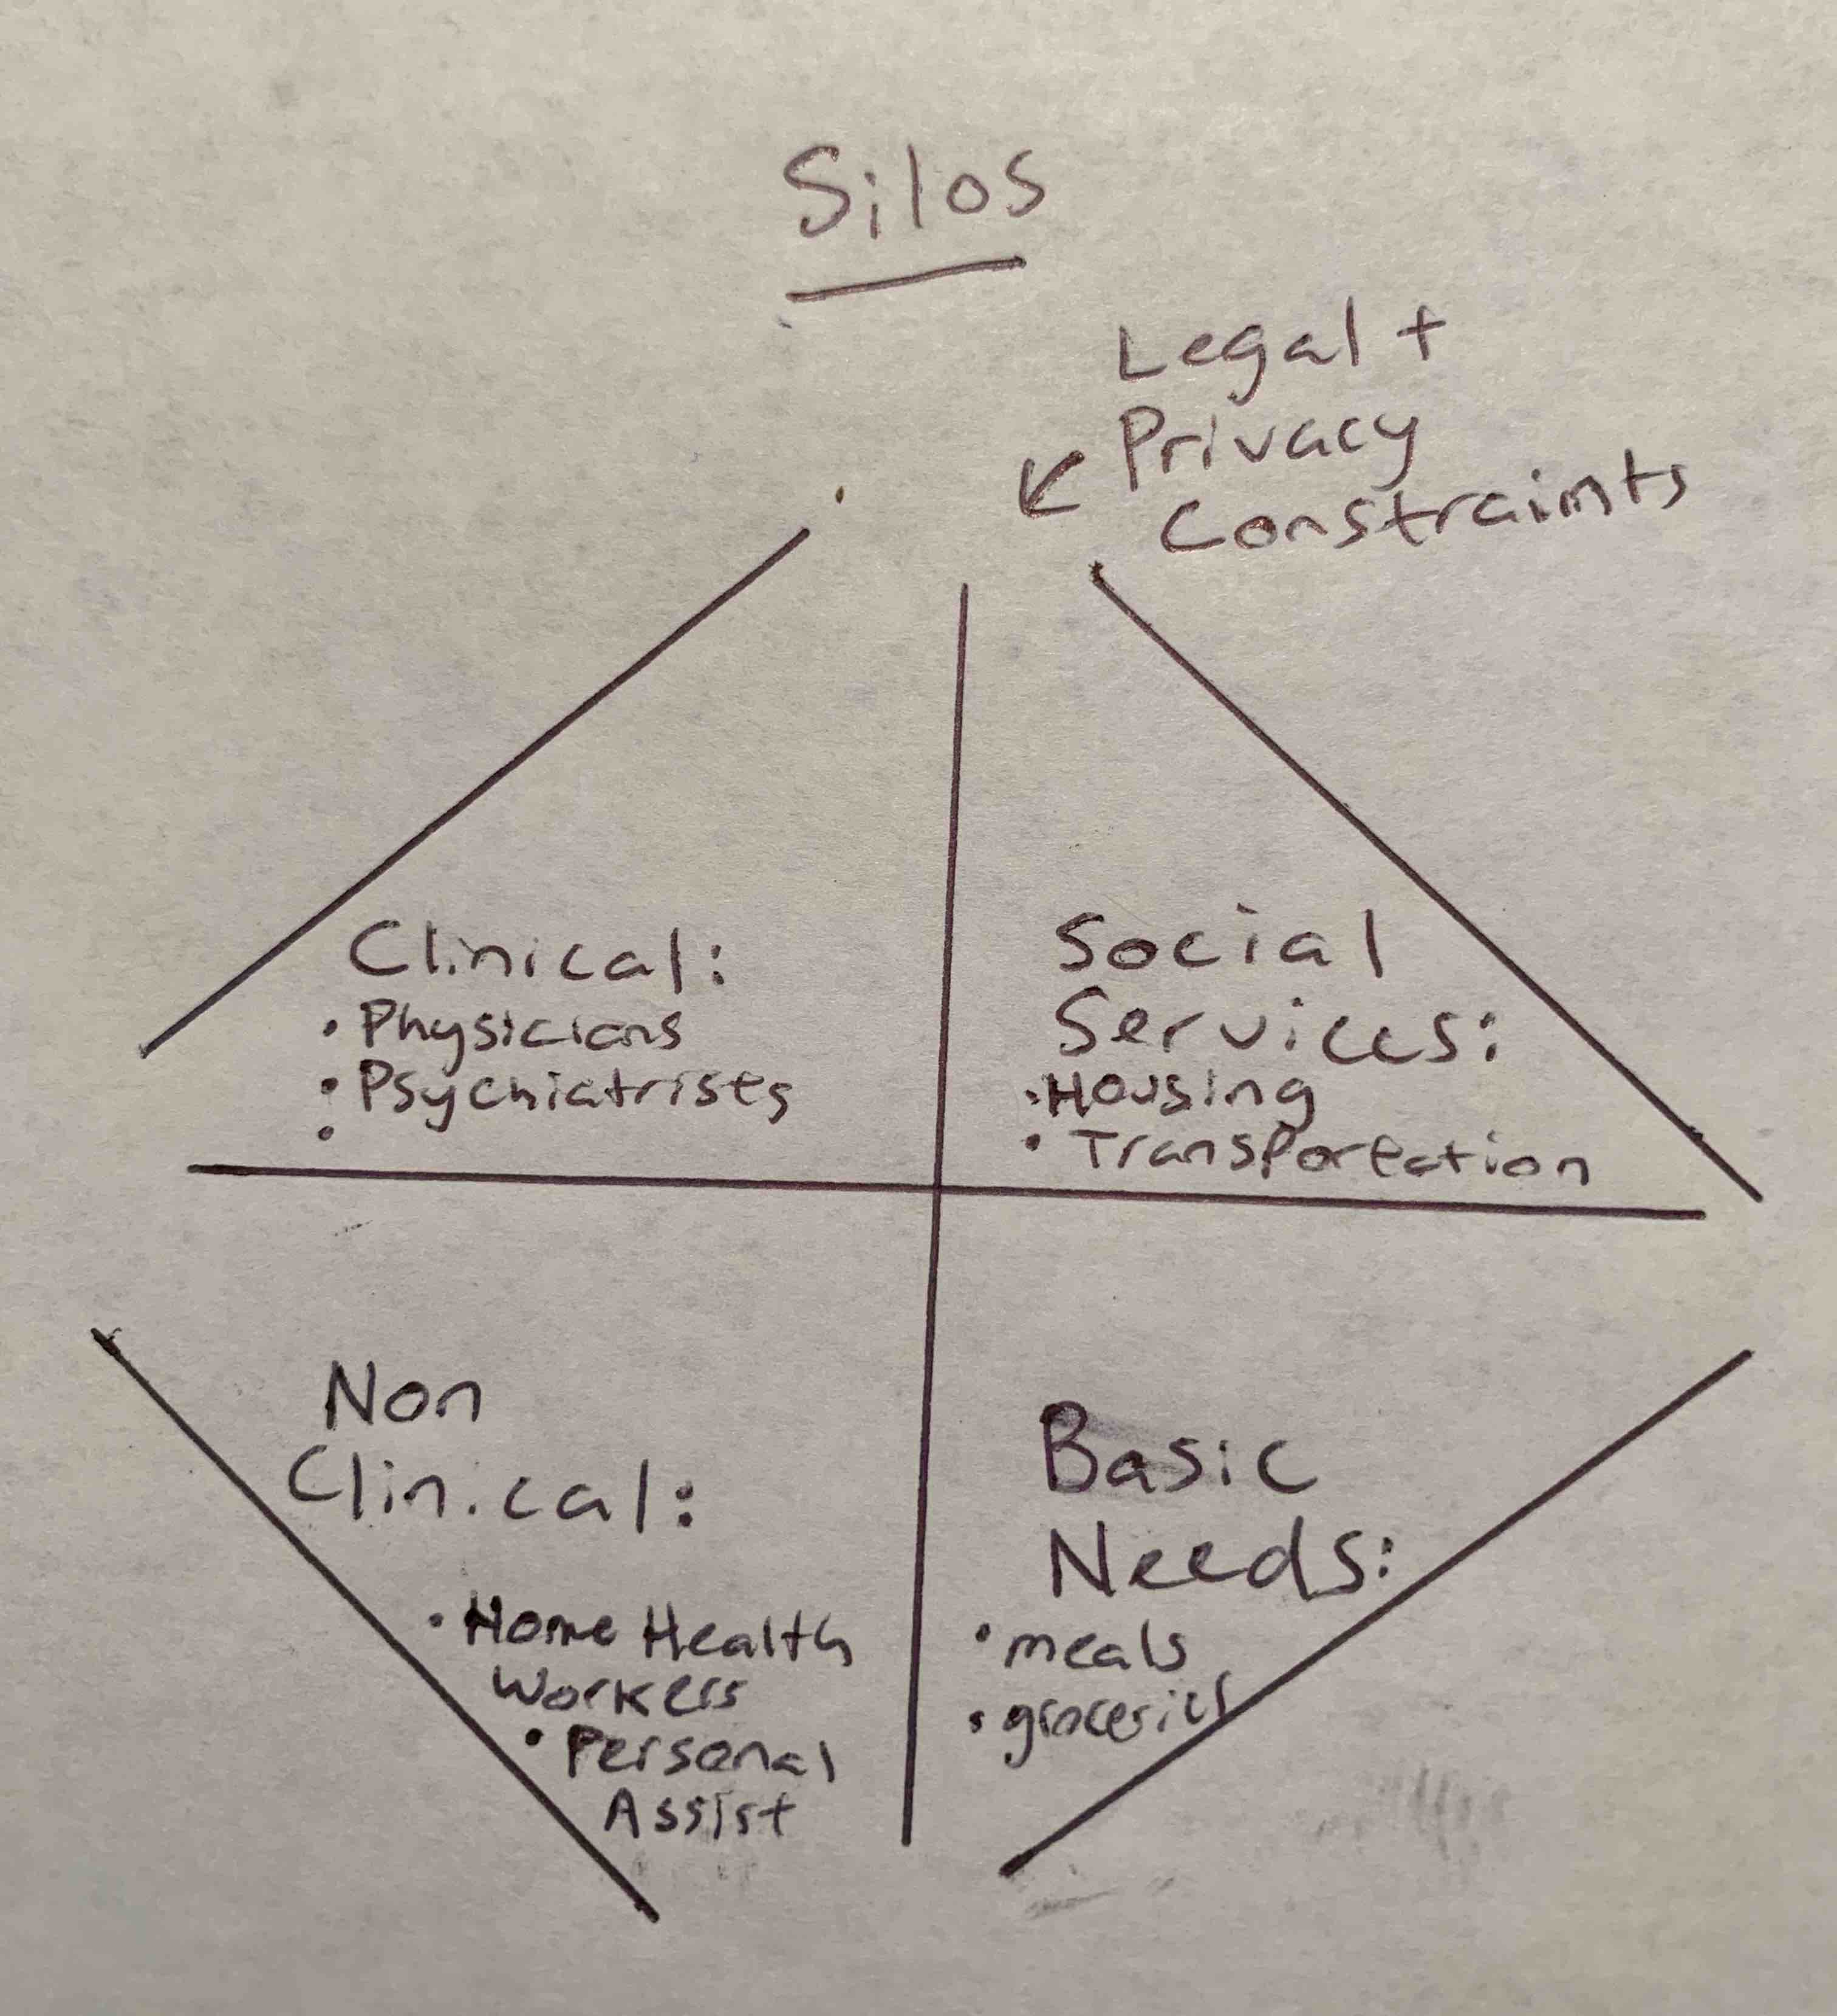 Silos
Legal +
Privacy
Constraints
Clinical:
• Physicians
• Psychiatrists
•
Social
Services:
• Housing
• Transportation
Non
Clinical:
• Home Health
Workers
• Personal
Assist
Basic
Needs:
• meals
• groceries